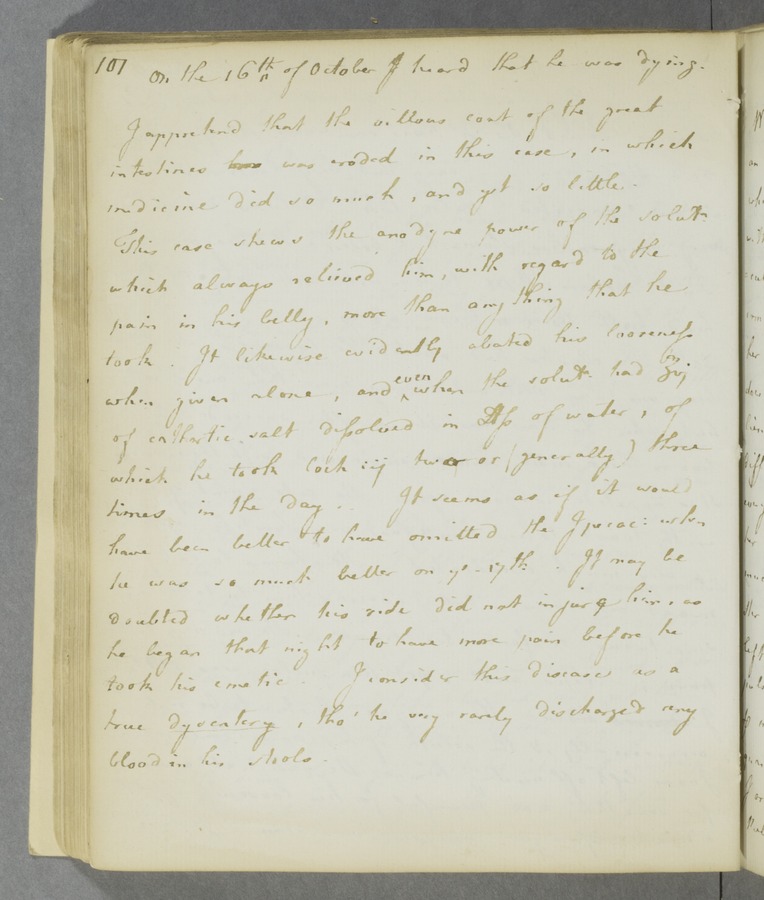 101 On the 16th of October I heard that he was dying.
I apprehend that the villous coat of the great
intestines was eroded in this case, in which
medicine did so much, and yet so little.
This case shews the anodyne power of the solutn.
which always relieved him, with regard to the
pain in his belly, more than any thing that he
took. It likewise evidently abated his looseness
when given alone, and even when the solutn. had ʒvj
of cathartic salt dissolved in ℔ss of water, of
which he took Coch iij two or (generally) three
times in the day. It seems as if it would
have been better to have omitted the Ipecac: when
he was so much better on ye. 17th. It may be
doubted whether his ride did not injure him, as
he began that night to have more pain before he
took his emetic. I consider this disease as a
true dysentery, tho' he very rarely discharged any
blood in his stools.